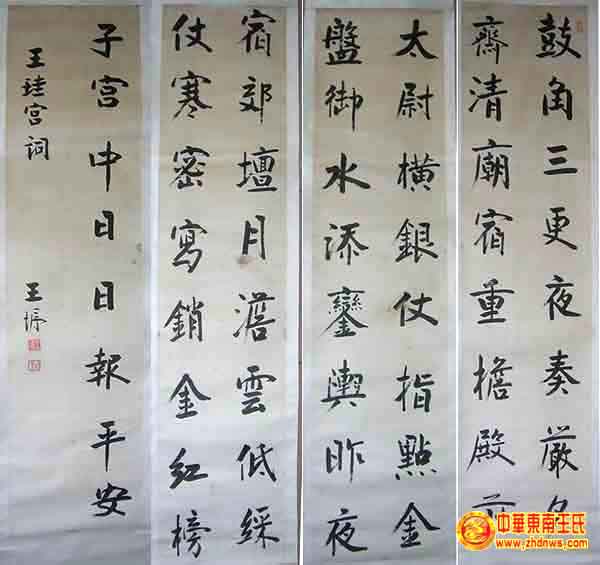 鼓角三更夜奏厳
齋清廟宿重檐殿
太尉橫銀仗指點金
盤御水添鑾輿昨夜
宿郊壇月澹雲低綵
仗寒密寫銷金紅榜
子宮中日日報平安
王珪宮詞
王
中華東南王氏
www.zhdnws.com